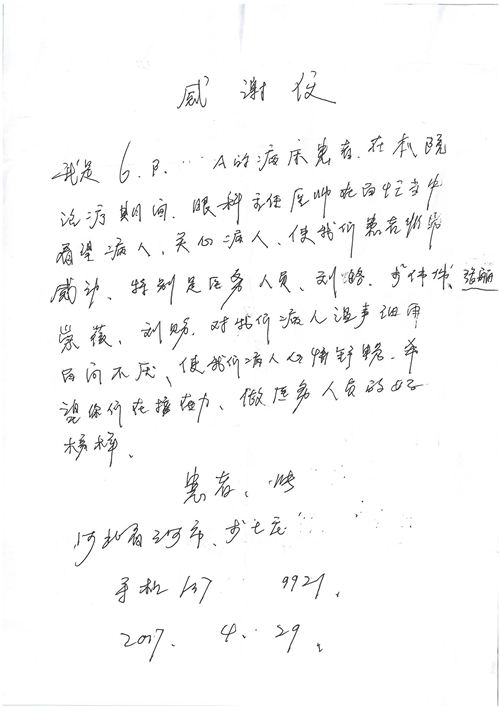 感谢信
我是6.B.…A的病床患者.在本院
治疗期间.眼科主任医师在百忙当中
看望病人、关心病人、使我们患者非常
感动、特别是医务人员、刘 伟 张丽
崇薇、刘 对我们病人温声细用
百问不厌、使我们病人心情舒畅.希
望你们在接在力、做医务人员的好
榜样、
患者、
河北省三河市、
手机137 9921.
2017. 4. 29.